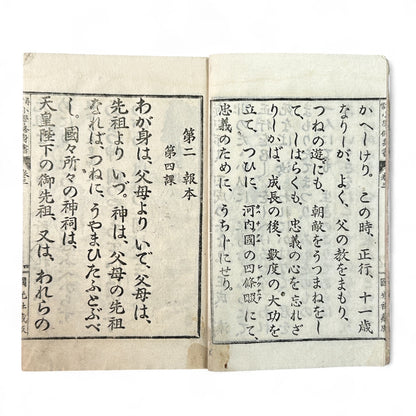 かへしけり。この時、正行、十一歳
なりしが、よく、父の教をまもり、
つねの遊にも、朝敵をうつまねをし
て、しばらくも、忠義の心を忘れざ
りしかば、成長の後、數度の大功を
立て、つひに、河内國の四條畷にて、
忠義のために、うち〻にせり。
第二 報本
第四課
わが身は、父母より いで、父母は、
先祖より いづ。神は、父母の先祖
なれば、つねに、うやまひたふとぶべ
し。國々所々の神祠は、
天皇陛下の御先祖、又は、われらの